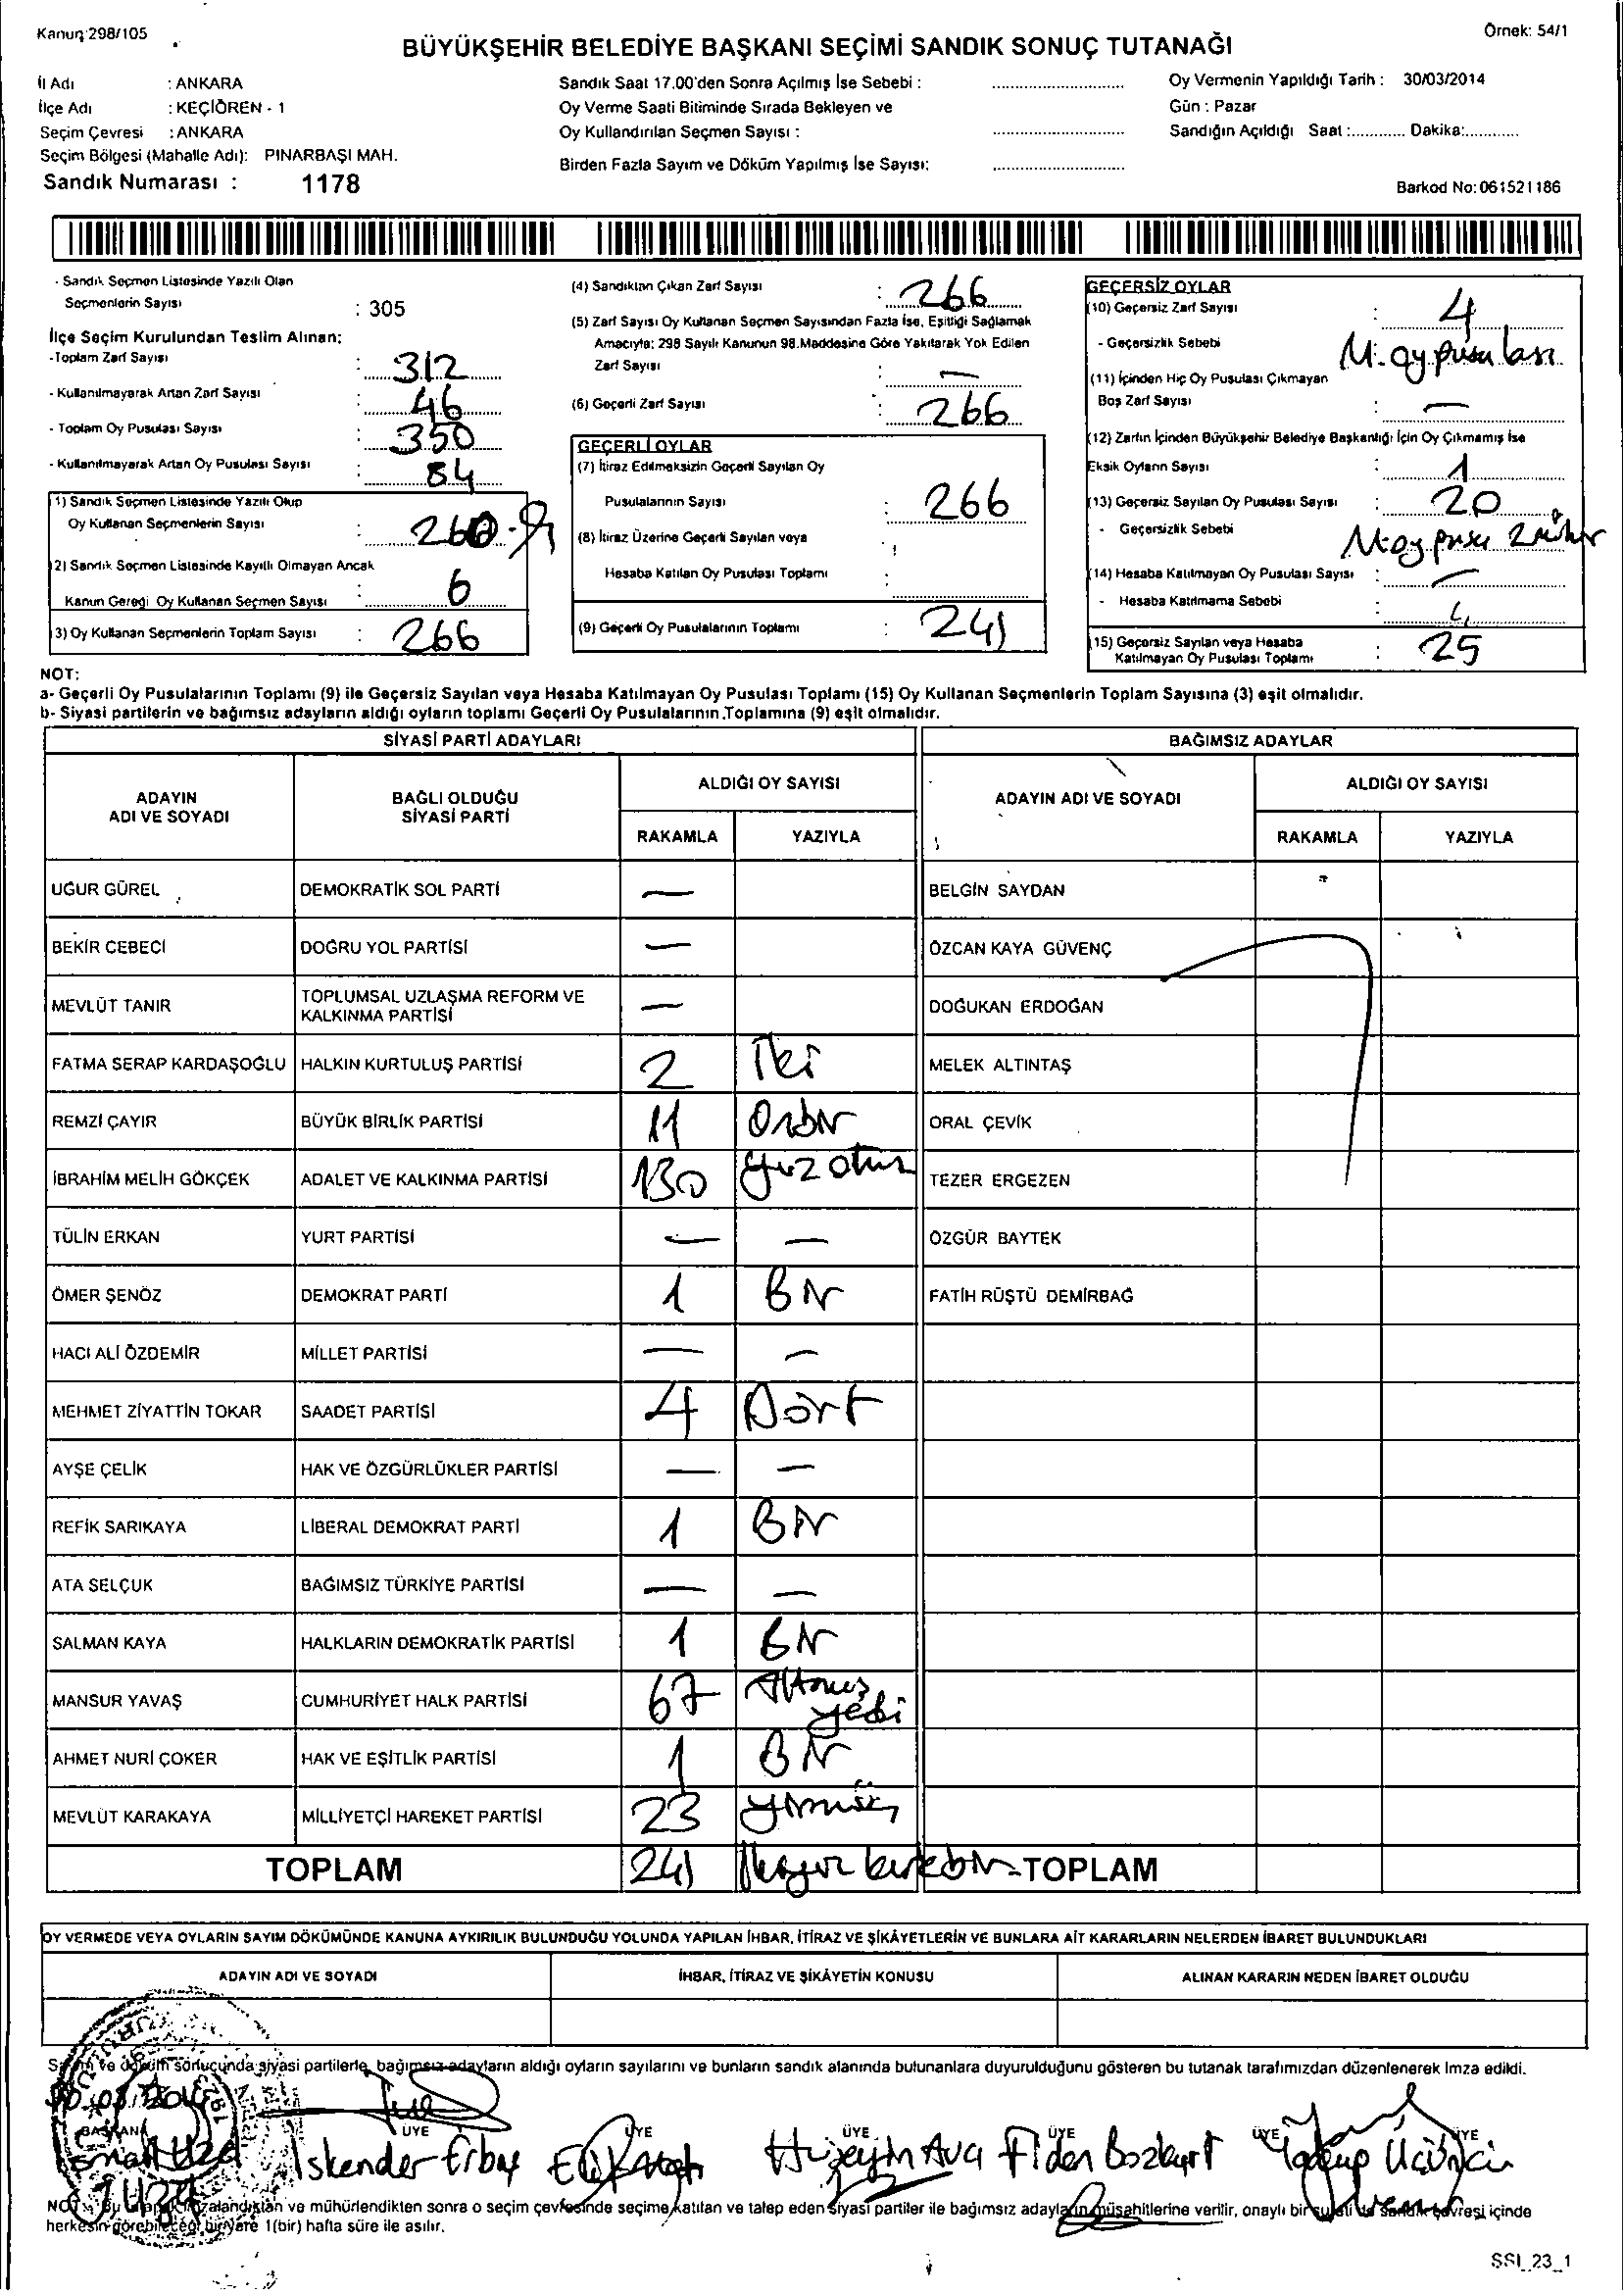 Kanun 298/105
Örnek: 54/1
BÜYÜKŞEHİR BELEDİYE BAŞKANI SEÇİMİ SANDIK SONUÇ TUTANAĞI
İl Adı : ANKARA
İlçe Adı : KEÇİÖREN - 1
Seçim Çevresi : ANKARA
Seçim Bölgesi (Mahalle Adı): PINARBAŞI MAH.
Sandık Numarası : 1178
Sandık Saat 17.00'den Sonra Açılmış İse Sebebi :
Oy Verme Saati Bitiminde Sırada Bekleyen ve
Oy Kullandırılan Seçmen Sayısı :
Birden Fazla Sayım ve Döküm Yapılmış İse Sayısı:
Oy Vermenin Yapıldığı Tarih : 30/03/2014
Gün : Pazar
Sandığın Açıldığı Saat :............ Dakika:............
Barkod No:061521186
- Sandık Seçmen Listesinde Yazılı Olan
Seçmenlerin Sayısı : 305
İlçe Seçim Kurulundan Teslim Alınan:
-Toplam Zarf Sayısı : 312
- Kullanılmayarak Artan Zarf Sayısı : 46
- Toplam Oy Pusulası Sayısı : 350
- Kullanılmayarak Artan Oy Pusulası Sayısı : 84
1) Sandık Seçmen Listesinde Yazılı Olup
Oy Kullanan Seçmenlerin Sayısı : 260
2) Sandık Seçmen Listesinde Kayıtlı Olmayan Ancak
Kanun Gereği Oy Kullanan Seçmen Sayısı : 6
3) Oy Kullanan Seçmenlerin Toplam Sayısı : 266
(4) Sandıktan Çıkan Zarf Sayısı : 266
(5) Zarf Sayısı Oy Kullanan Seçmen Sayısından Fazla İse, Eşitliği Sağlamak
Amacıyla; 298 Sayılı Kanunun 98.Maddesine Göre Yakılarak Yok Edilen
Zarf Sayısı : —
(6) Geçerli Zarf Sayısı : 266
GEÇERLİ OYLAR
(7) İtiraz Edilmeksizin Geçerli Sayılan Oy
Pusulalarının Sayısı : 266
(8) İtiraz Üzerine Geçerli Sayılan veya
Hesaba Katılan Oy Pusulası Toplamı :
(9) Geçerli Oy Pusulalarının Toplamı : 241
GEÇERSİZ OYLAR
(10) Geçersiz Zarf Sayısı : 4
- Geçersizlik Sebebi M. oy pusulası
(11) İçinden Hiç Oy Pusulası Çıkmayan
Boş Zarf Sayısı : —
(12) Zarfın İçinden Büyükşehir Belediye Başkanlığı İçin Oy Çıkmamış İse
Eksik Oyların Sayısı : 1
(13) Geçersiz Sayılan Oy Pusulası Sayısı : 20
- Geçersizlik Sebebi
(14) Hesaba Katılmayan Oy Pusulası Sayısı : —
- Hesaba Katılmama Sebebi :
(15) Geçersiz Sayılan veya Hesaba
Katılmayan Oy Pusulası Toplamı : 25
NOT:
a- Geçerli Oy Pusulalarının Toplamı (9) ile Geçersiz Sayılan veya Hesaba Katılmayan Oy Pusulası Toplamı (15) Oy Kullanan Seçmenlerin Toplam Sayısına (3) eşit olmalıdır.
b- Siyasi partilerin ve bağımsız adayların aldığı oyların toplamı Geçerli Oy Pusulalarının Toplamına (9) eşit olmalıdır.
SİYASİ PARTİ ADAYLARI
ADAYIN ADI VE SOYADI
BAĞLI OLDUĞU SİYASİ PARTİ
ALDIĞI OY SAYISI
RAKAMLA YAZIYLA
UĞUR GÜREL DEMOKRATİK SOL PARTİ —
BEKİR CEBECİ DOĞRU YOL PARTİSİ —
MEVLÜT TANIR TOPLUMSAL UZLAŞMA REFORM VE KALKINMA PARTİSİ —
FATMA SERAP KARDAŞOĞLU HALKIN KURTULUŞ PARTİSİ 2 İki
REMZİ ÇAYIR BÜYÜK BİRLİK PARTİSİ 11 Onbir
İBRAHİM MELİH GÖKÇEK ADALET VE KALKINMA PARTİSİ 130 Yüz otuz
TÜLİN ERKAN YURT PARTİSİ — —
ÖMER ŞENÖZ DEMOKRAT PARTİ 1 Bir
HACI ALİ ÖZDEMİR MİLLET PARTİSİ — —
MEHMET ZİYATTİN TOKAR SAADET PARTİSİ 4 Dört
AYŞE ÇELİK HAK VE ÖZGÜRLÜKLER PARTİSİ — —
REFİK SARIKAYA LİBERAL DEMOKRAT PARTİ 1 Bir
ATA SELÇUK BAĞIMSIZ TÜRKİYE PARTİSİ — —
SALMAN KAYA HALKLARIN DEMOKRATİK PARTİSİ 1 Bir
MANSUR YAVAŞ CUMHURİYET HALK PARTİSİ 67 Altmış yedi
AHMET NURİ ÇOKER HAK VE EŞİTLİK PARTİSİ 1 Bir
MEVLÜT KARAKAYA MİLLİYETÇİ HAREKET PARTİSİ 23 yirmiüç
TOPLAM 241 İkiyüz kırkbir
BAĞIMSIZ ADAYLAR
ADAYIN ADI VE SOYADI
ALDIĞI OY SAYISI
RAKAMLA YAZIYLA
BELGİN SAYDAN
ÖZCAN KAYA GÜVENÇ
DOĞUKAN ERDOĞAN
MELEK ALTINTAŞ
ORAL ÇEVİK
TEZER ERGEZEN
ÖZGÜR BAYTEK
FATİH RÜŞTÜ DEMİRBAĞ
TOPLAM
OY VERMEDE VEYA OYLARIN SAYIM DÖKÜMÜNDE KANUNA AYKIRILIK BULUNDUĞU YOLUNDA YAPILAN İHBAR, İTİRAZ VE ŞİKÂYETLERİN VE BUNLARA AİT KARARLARIN NELERDEN İBARET BULUNDUKLARI
ADAYIN ADI VE SOYADI İHBAR, İTİRAZ VE ŞİKÂYETİN KONUSU ALINAN KARARIN NEDEN İBARET OLDUĞU
Sayım ve döküm sonucunda siyasi partilerle, bağımsız adayların aldığı oyların sayılarını ve bunların sandık alanında bulunanlara duyurulduğunu gösteren bu tutanak tarafımızdan düzenlenerek imza edildi.
BAŞKAN ÜYE ÜYE ÜYE ÜYE ÜYE ÜYE
İskender Erbay Hüseyin Avcı Fiden Bozkurt Yakup Üçüncü
NOT: Bu tutanak imzalandıktan ve mühürlendikten sonra o seçim çevresinde seçime katılan ve talep eden siyasi partiler ile bağımsız adayların müşahitlerine verilir, onaylı bir sureti de sandık çevresi içinde
herkesin görebileceği bir yere 1(bir) hafta süre ile asılır.
SSI_23_1